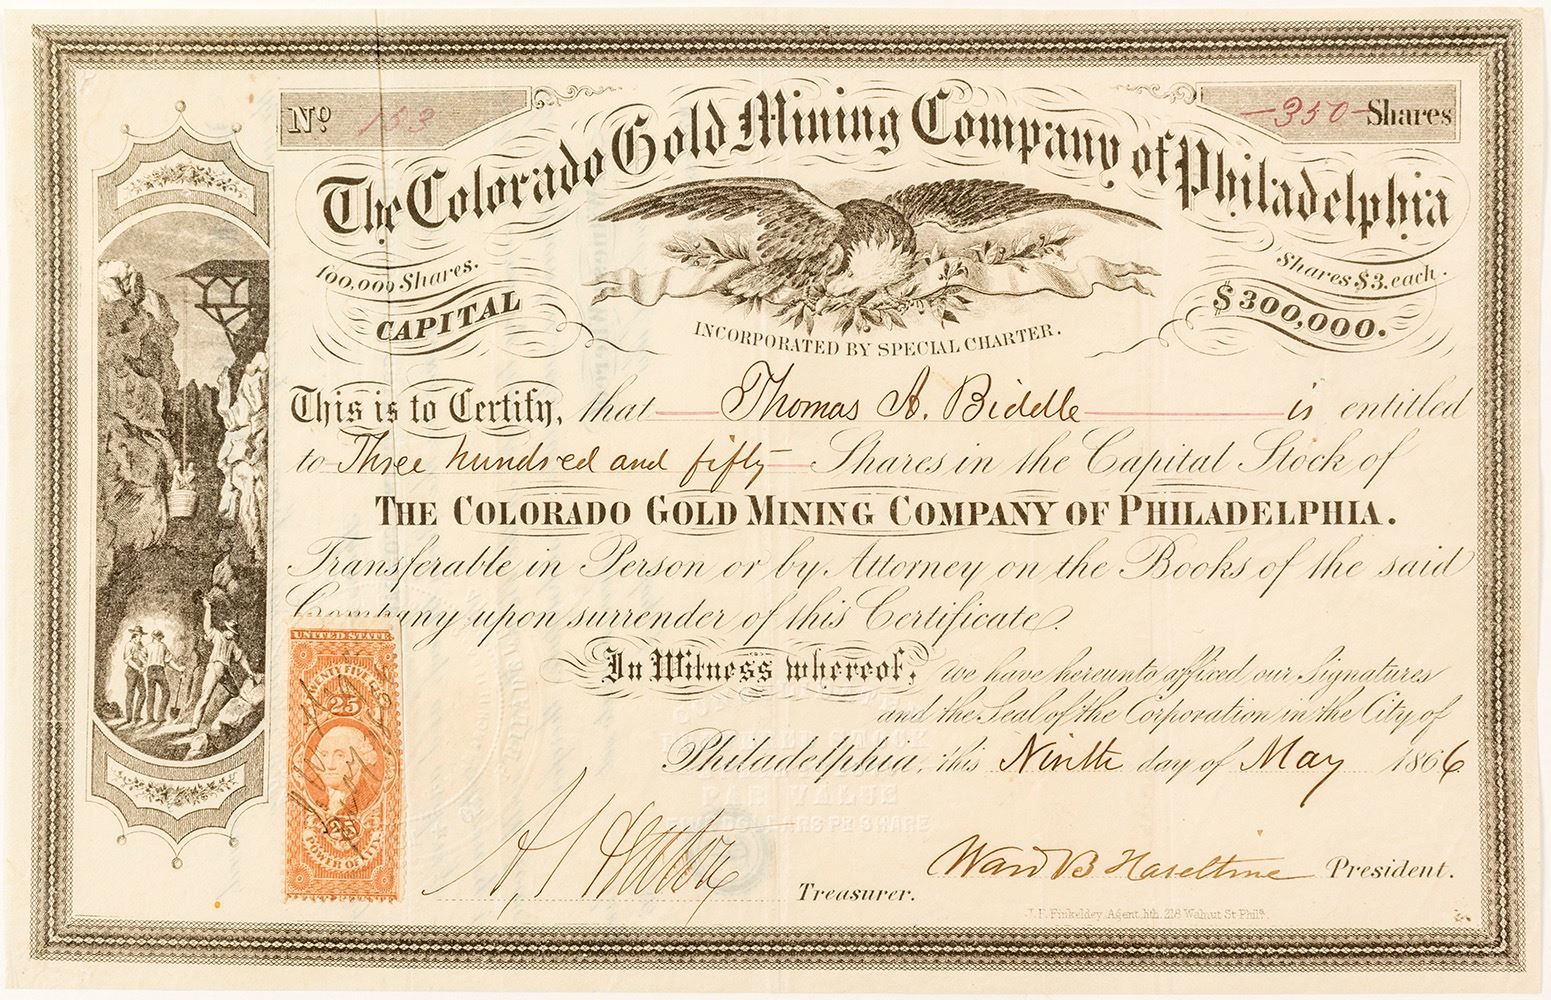 Nº 153
350 Shares
The Colorado Gold Mining Company of Philadelphia
100,000 Shares.
Shares $3. each.
CAPITAL
$300,000.
INCORPORATED BY SPECIAL CHARTER.
This is to Certify, that Thomas A. Biddle is entitled
to Three hundred and fifty Shares in the Capital Stock of
THE COLORADO GOLD MINING COMPANY OF PHILADELPHIA.
Transferable in Person or by Attorney on the Books of the said
Company upon surrender of this Certificate
In Witness whereof, we have hereunto affixed our Signatures
and the Seal of the Corporation in the City of
Philadelphia, this Ninth day of May 1866
UNITED STATES
TWENTY FIVE
25
25
POWER OF
PAR VALUE
Treasurer.
Ward B Haseltine President.
J. F. Finkeldey Agent lith. 218 Walnut St Phila.